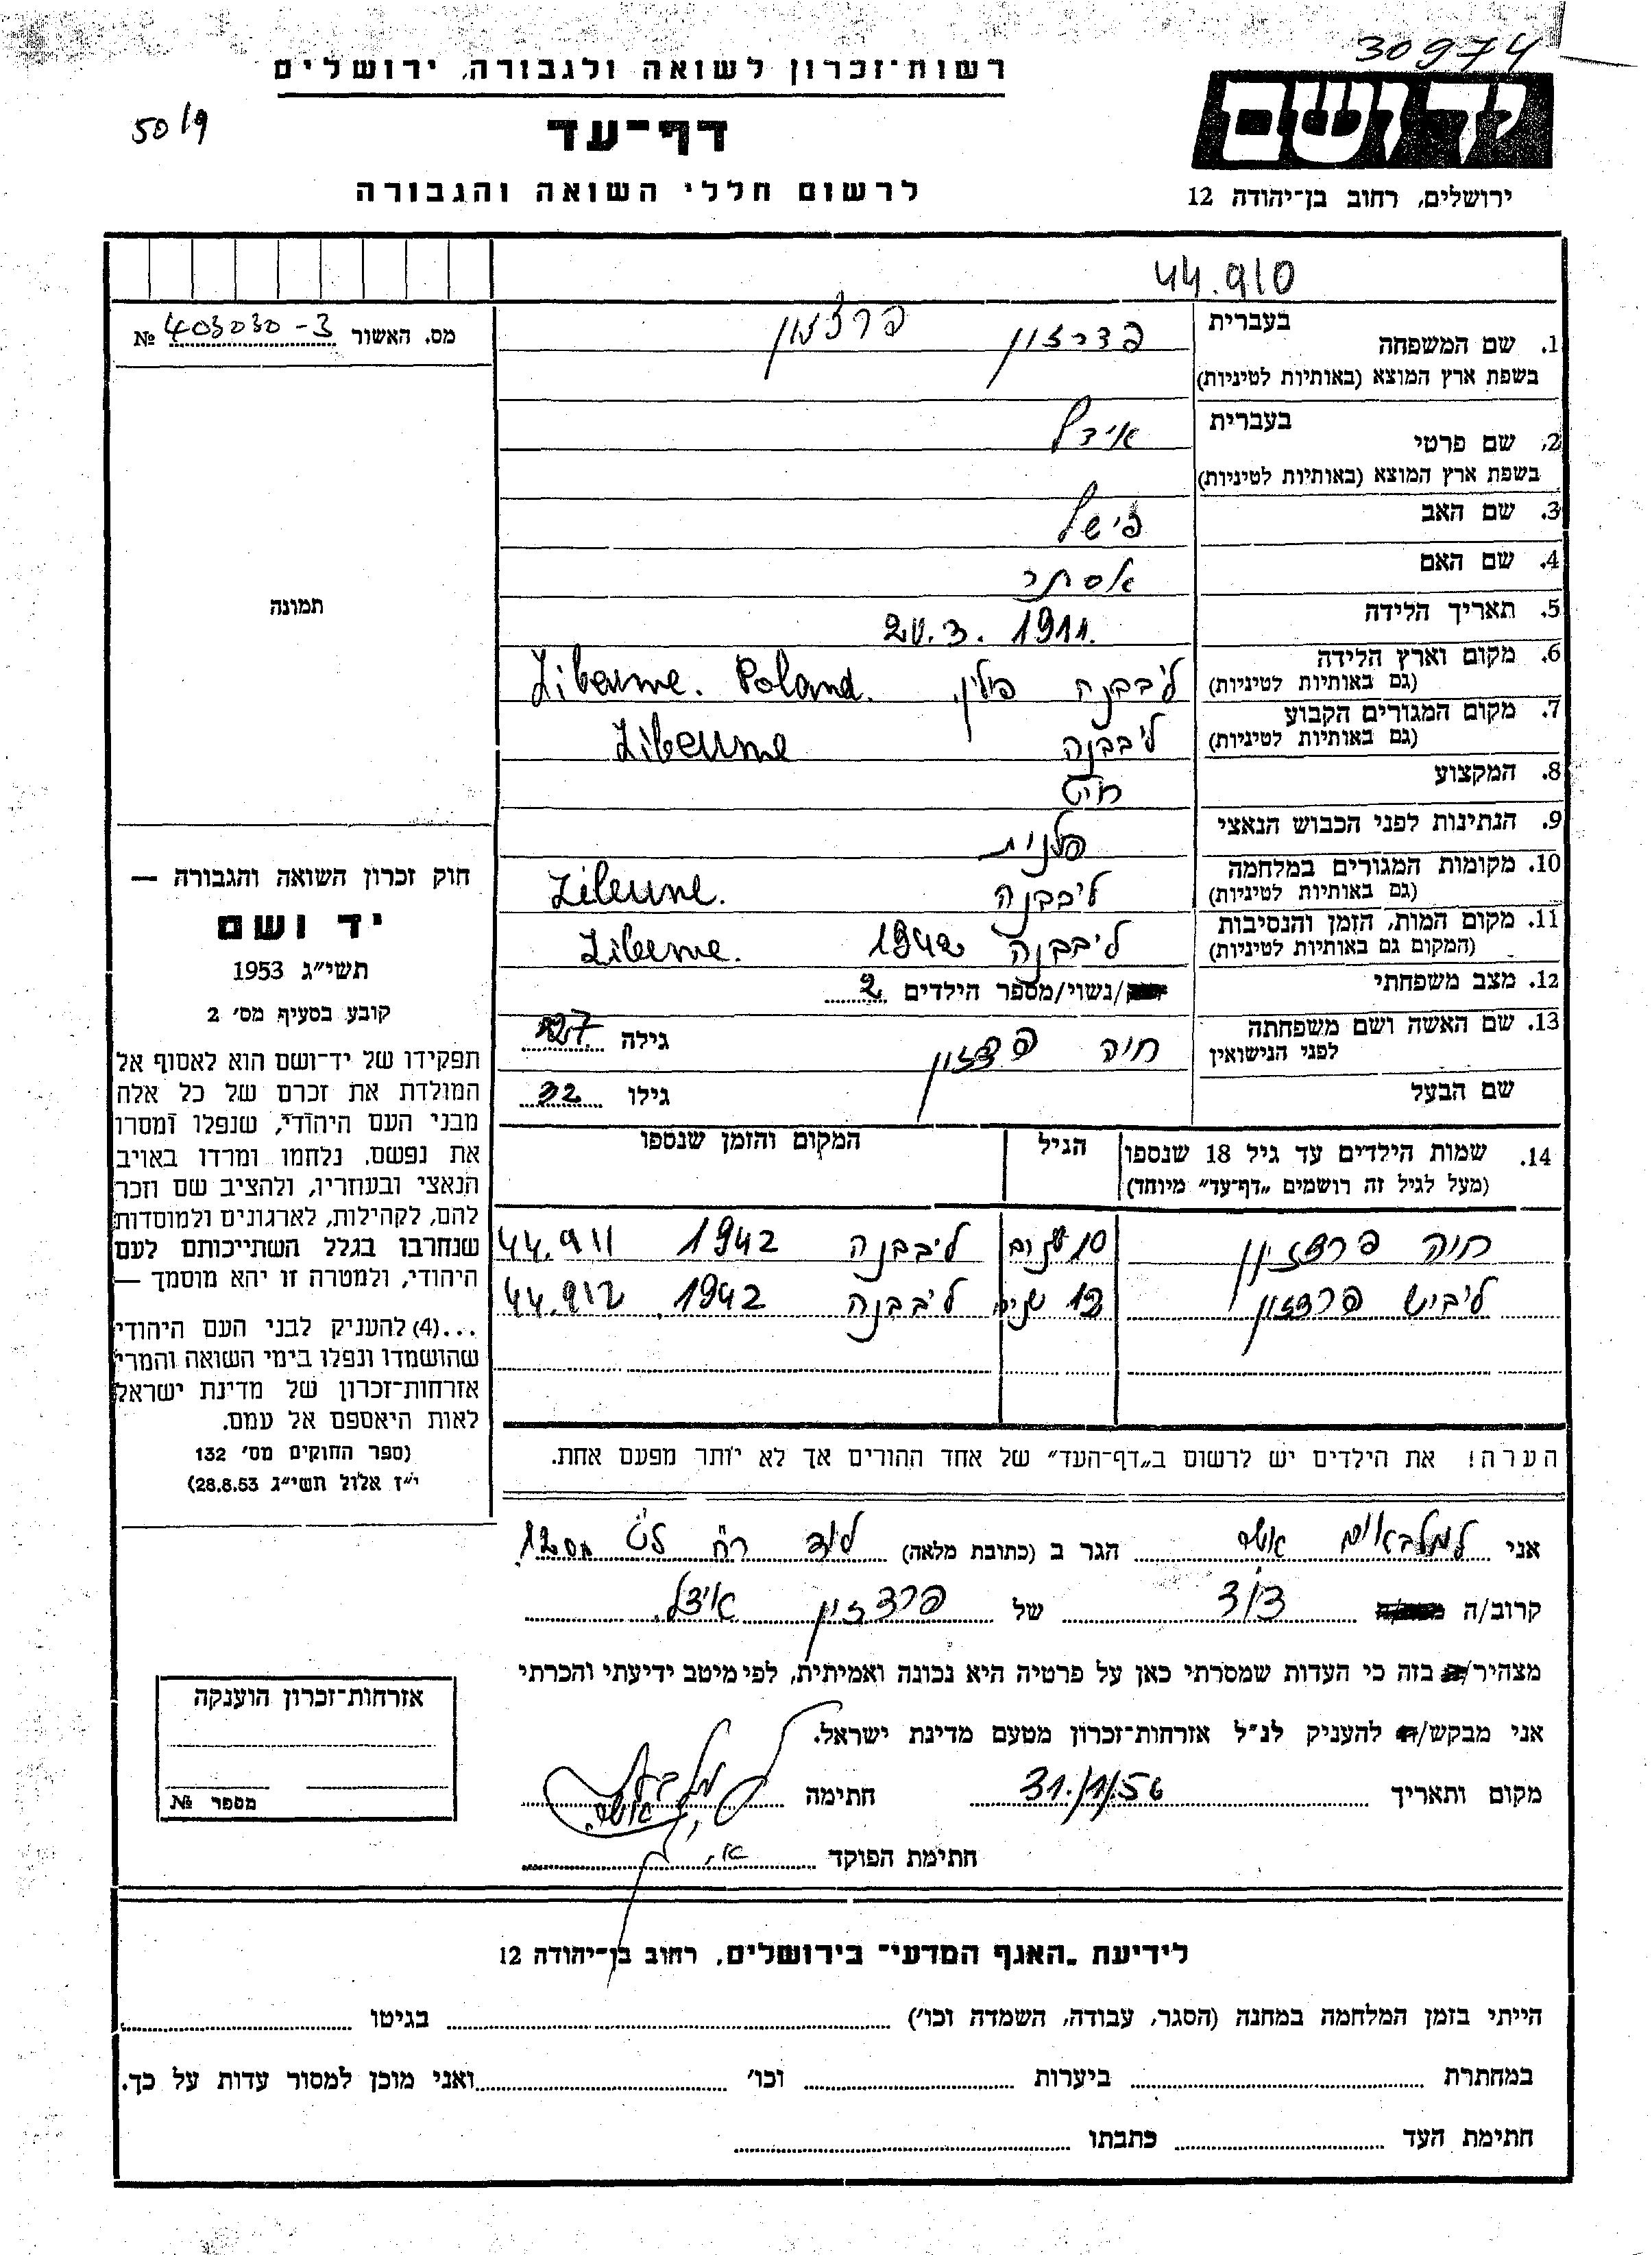 30974
רשות־זכרון לשואה ולגבורה, ירושלים
יד ושם
50/9
דף־עד
לרשום חללי השואה והגבורה
ירושלים, רחוב בן־יהודה 12
44.910
מס. האשור 403030-3 №
1. שם המשפחה
בעברית פדרזון
בשפת ארץ המוצא (באותיות לטיניות)
2. שם פרטי
בעברית אידל
בשפת ארץ המוצא (באותיות לטיניות)
3. שם האב פישל
4. שם האם אסתר
5. תאריך הלידה 1911
6. מקום וארץ הלידה ליבבנה פולין. Poland.
(גם באותיות לטיניות)
7. מקום המגורים הקבוע ליבבנה
(גם באותיות לטיניות)
8. המקצוע חיט
9. הנתינות לפני הכבוש הנאצי פלנית
10. מקומות המגורים במלחמה ליבבנה
(גם באותיות לטיניות)
11. מקום המות, הזמן והנסיבות ליבבנה 1942
(המקום גם באותיות לטיניות)
12. מצב משפחתי /נשוי/מספר הילדים 2
13. שם האשה ושם משפחתה חיה גילה 27
לפני הנישואין
שם הבעל גילו 32
תמונה
14. שמות הילדים עד גיל 18 שנספו הגיל המקום והזמן שנספו
(מעל לגיל זה רושמים „דף־עד” מיוחד)
חיה פרדזון 10 ליבבנה 1942 44.911
ליביש פרדזון 12 ליבבנה 1942 44.912
חוק זכרון השואה והגבורה —
יד ושם
תשי״ג 1953
קובע בסעיף מס׳ 2
תפקידו של יד־ושם הוא לאסוף אל
המולדת את זכרם של כל אלה
מבני העם היהודי, שנפלו ומסרו
את נפשם, נלחמו ומרדו באויב
הנאצי ובעוזריו, ולהציב שם וזכר
להם, לקהילות, לארגונים ולמוסדות
שנחרבו בגלל השתייכותם לעם
היהודי, ולמטרה זו יהא מוסמך —
...(4) להעניק לבני העם היהודי
שהושמדו ונפלו בימי השואה והמרי
אזרחות־זכרון של מדינת ישראל
לאות היאספם אל עמם.
(ספר החוקים מס׳ 132
י״ז אלול תשי״ג 28.8.53)
הערה! את הילדים יש לרשום ב„דף־העד” של אחד ההורים אך לא יותר מפעם אחת.
אני אשר הגר ב (כתובת מלאה) לוד רח׳
קרוב/ה דוד של פרדזון אידל
מצהיר/ה בזה כי העדות שמסרתי כאן על פרטיה היא נכונה ואמיתית, לפי מיטב ידיעתי והכרתי
אני מבקש/ת להעניק לנ״ל אזרחות־זכרון מטעם מדינת ישראל.
מקום ותאריך 31/1/56 חתימה
חתימת הפוקד
אזרחות־זכרון הוענקה
מספר №
לידיעת „האגף המדעי” בירושלים, רחוב בן־יהודה 12
הייתי בזמן המלחמה במחנה (הסגר, עבודה, השמדה וכו׳) בגיטו
במחתרת ביערות וכו׳ ואני מוכן למסור עדות על כך.
חתימת העד כתבתו